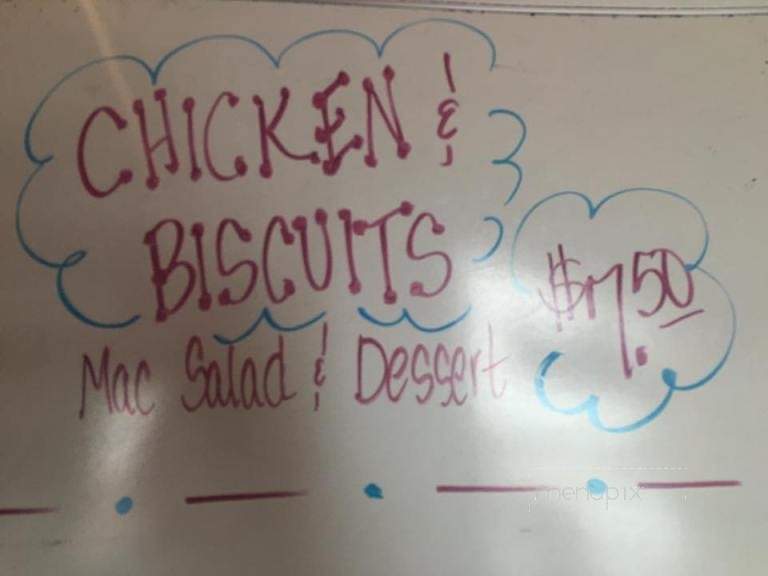 CHICKEN &
BISCUITS
$7.50
Mac Salad & Dessert
menupix